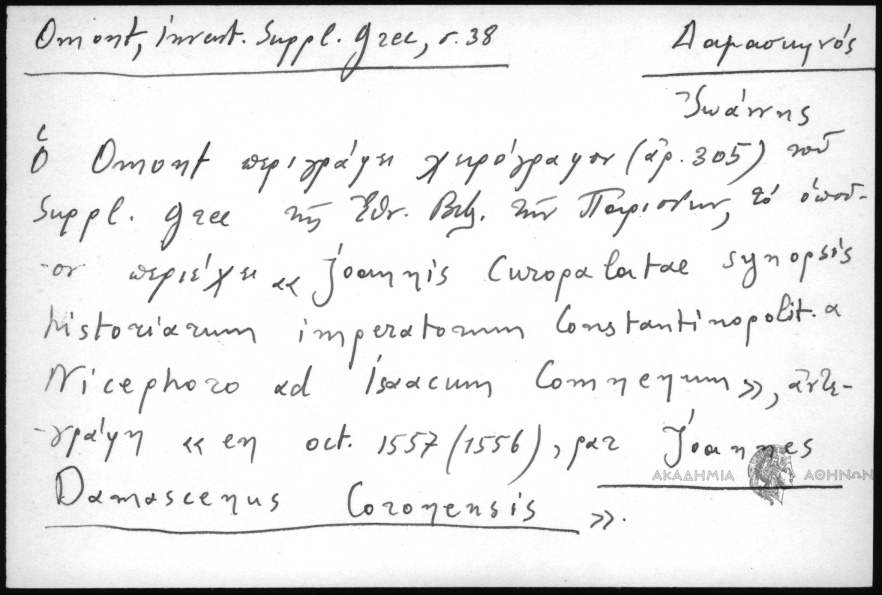 Omont, invent. Suppl. grec, σ. 38
Δαμασκηνός
Ἰωάννης
Ὁ Omont περιγράφει χειρόγραφον (ἀρ. 305) τοῦ
Suppl. grec τῆς Ἐθν. Βιβ. τῶν Παρισίων, τὸ ὁποῖ-
-ον περιέχει «Joannis Curopalatae synopsis
historiarum imperatorum Constantinopolit. a
Nicephoro ad Isaacum Comnenum», ἀντε-
-γράφη «en oct. 1557 (1556), par Joannes
Damascenus Coronensis».
ΑΚΑΔΗΜΙΑ ΑΘΗΝΩΝ